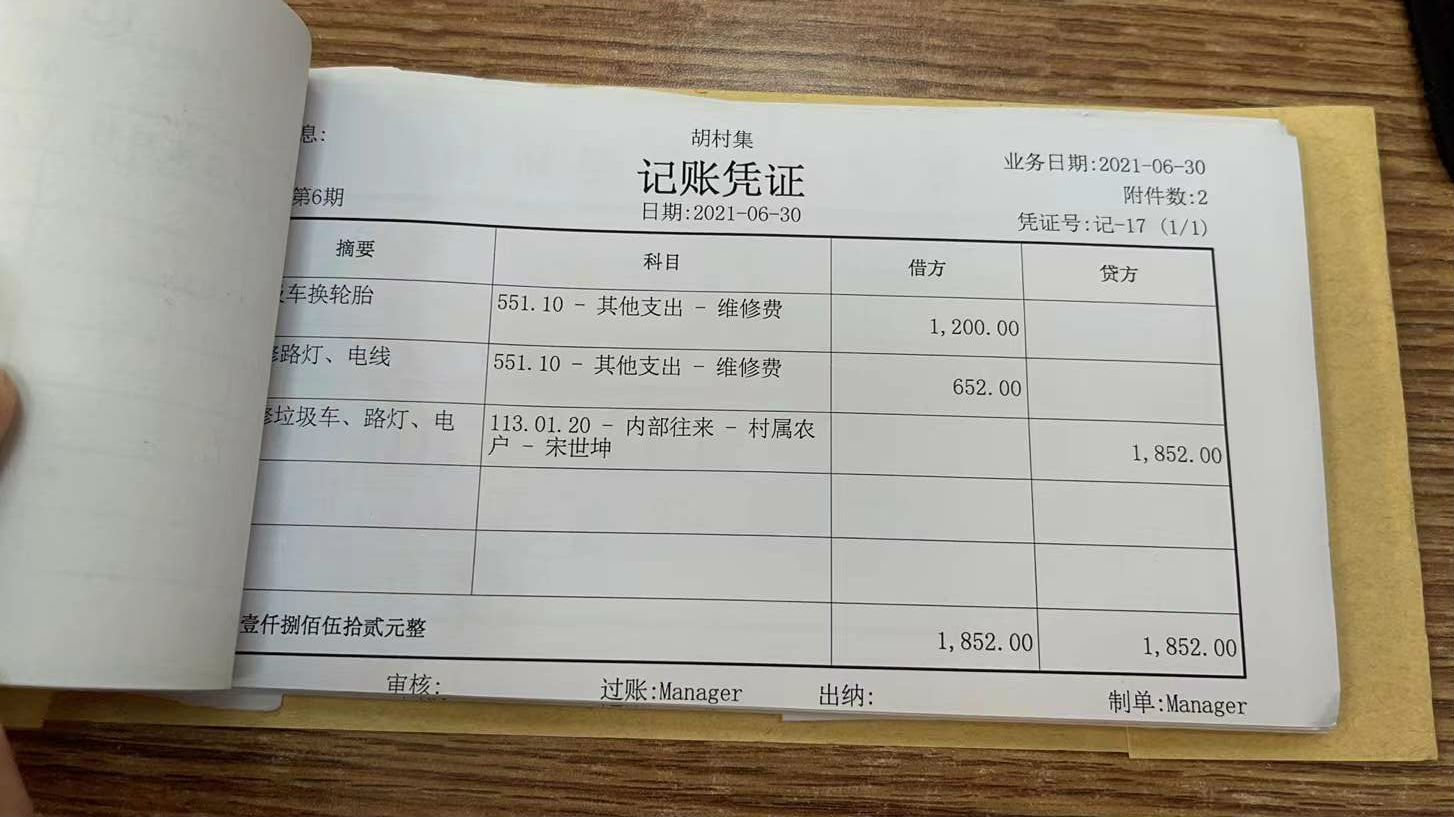 息:
胡村集
业务日期:2021-06-30
记账凭证
附件数:2
第6期
日期:2021-06-30
凭证号:记-17 (1/1)
摘要 科目 借方 贷方
车换轮胎 551.10 - 其他支出 - 维修费 1,200.00
路灯、电线 551.10 - 其他支出 - 维修费 652.00
垃圾车、路灯、电 113.01.20 - 内部往来 - 村属农 1,852.00
户 - 宋世坤
壹仟捌佰伍拾贰元整 1,852.00 1,852.00
审核: 过账:Manager 出纳: 制单:Manager